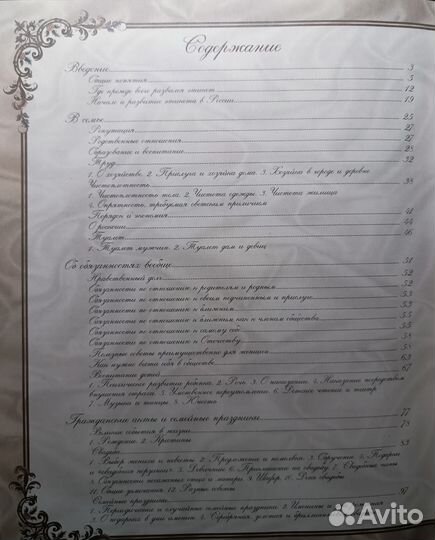 Содержание
Введение 3
Общие понятия 5
Где прежде всего развился этикет 12
Начало и развитие этикета в России 19
В семье 25
Репутация 27
Родственные отношения 27
Образование и воспитание 28
Труд 32
1. О хозяйстве. 2. Прислуга и хозяйка дома. 3. Хозяйка в городе и деревне
Чистоплотность 38
1. Чистоплотность тела. 2. Чистота одежды. 3. Чистота жилища
4. Опрятность, требуемая светским приличием
Порядок и экономия 41
О роскоши 44
Туалет 46
1. Туалет мужчин. 2. Туалет дам и девиц
Об обязанностях вообще 51
Нравственный долг 52
Обязанности по отношению к родителям и родным 52
Обязанности по отношению к своим подчиненным и прислуге 53
Обязанности по отношению к ближним 53
Обязанности по отношению к ближним как к членам общества 55
Обязанности по отношению к самому себе 55
Обязанности по отношению к Отечеству 58
Полезные советы преимущественно для женщин 58
Как нужно вести себя в обществе 63
Воспитание детей 67
1. Психическое развитие ребенка. 2. Речь. 3. О наказании. 4. Наказание посредством
внушения страха. 5. Умственное переутомление. 6. Детское чтение и театр
7. Музыка и танцы. 8. Юность
Гражданские акты и семейные праздники 77
Великие события в жизни 78
1. Рождение. 2. Крестины
Свадьба 83
1. Выбор жениха и невесты. 2. Предложение и помолвка. 3. Обручение. 4. Подарок
6. Приглашение на свадьбу. 7. Свадебные чины
8. Обязанности посаженых отца и матери. 9. Шафер. 10. День свадьбы
11. Общие замечания. 12. Разные советы
Семейные праздники 97
1. Периодические и случайные семейные праздники. 2. Именины и
3. О подарках в дни именин. 4. Серебряная, золотая и бриллиантовая
Avito